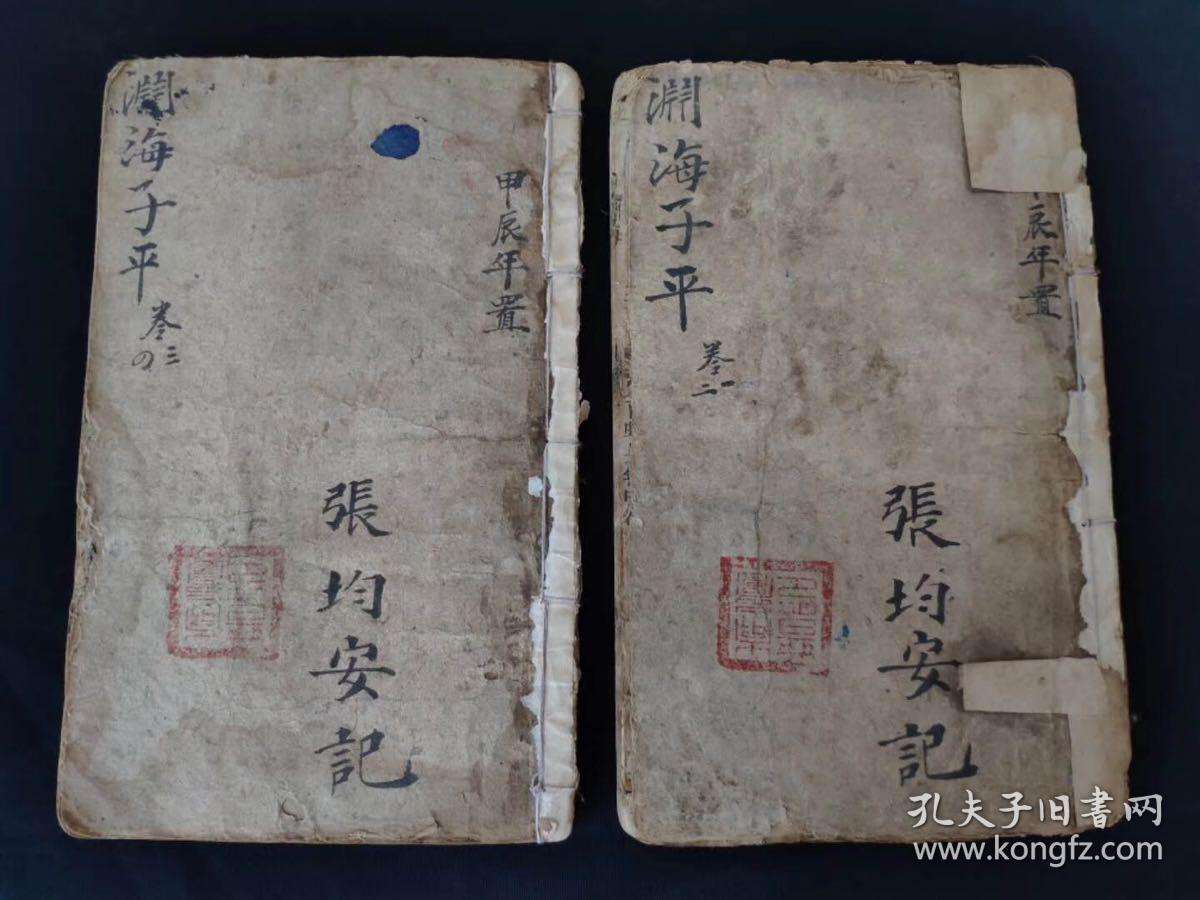 淵海子平
卷三
四
甲辰年置
張均安記
淵海子平
卷一
二
辰年置
張均安記
孔夫子旧書网
www.kongfz.com